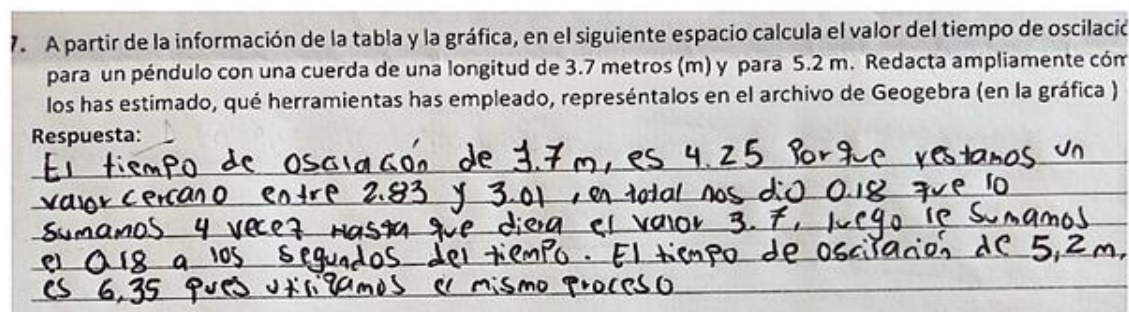 7. A partir de la información de la tabla y la gráfica, en el siguiente espacio calcula el valor del tiempo de oscilació
para un péndulo con una cuerda de una longitud de 3.7 metros (m) y para 5.2 m. Redacta ampliamente cóm
los has estimado, qué herramientas has empleado, represéntalos en el archivo de Geogebra (en la gráfica )
Respuesta:
El tiempo de oscilación de 3.7 m, es 4.25 Porque restamos un
valor cercano entre 2.83 y 3.01 , en total nos dio 0.18 que lo
Sumamos 4 vecez Hasta que diera el valor 3.7, luego le Sumamos
el 0.18 a los segundos del tiempo. El tiempo de oscilación de 5,2 m,
es 6,35 pues utilizamos el mismo proceso